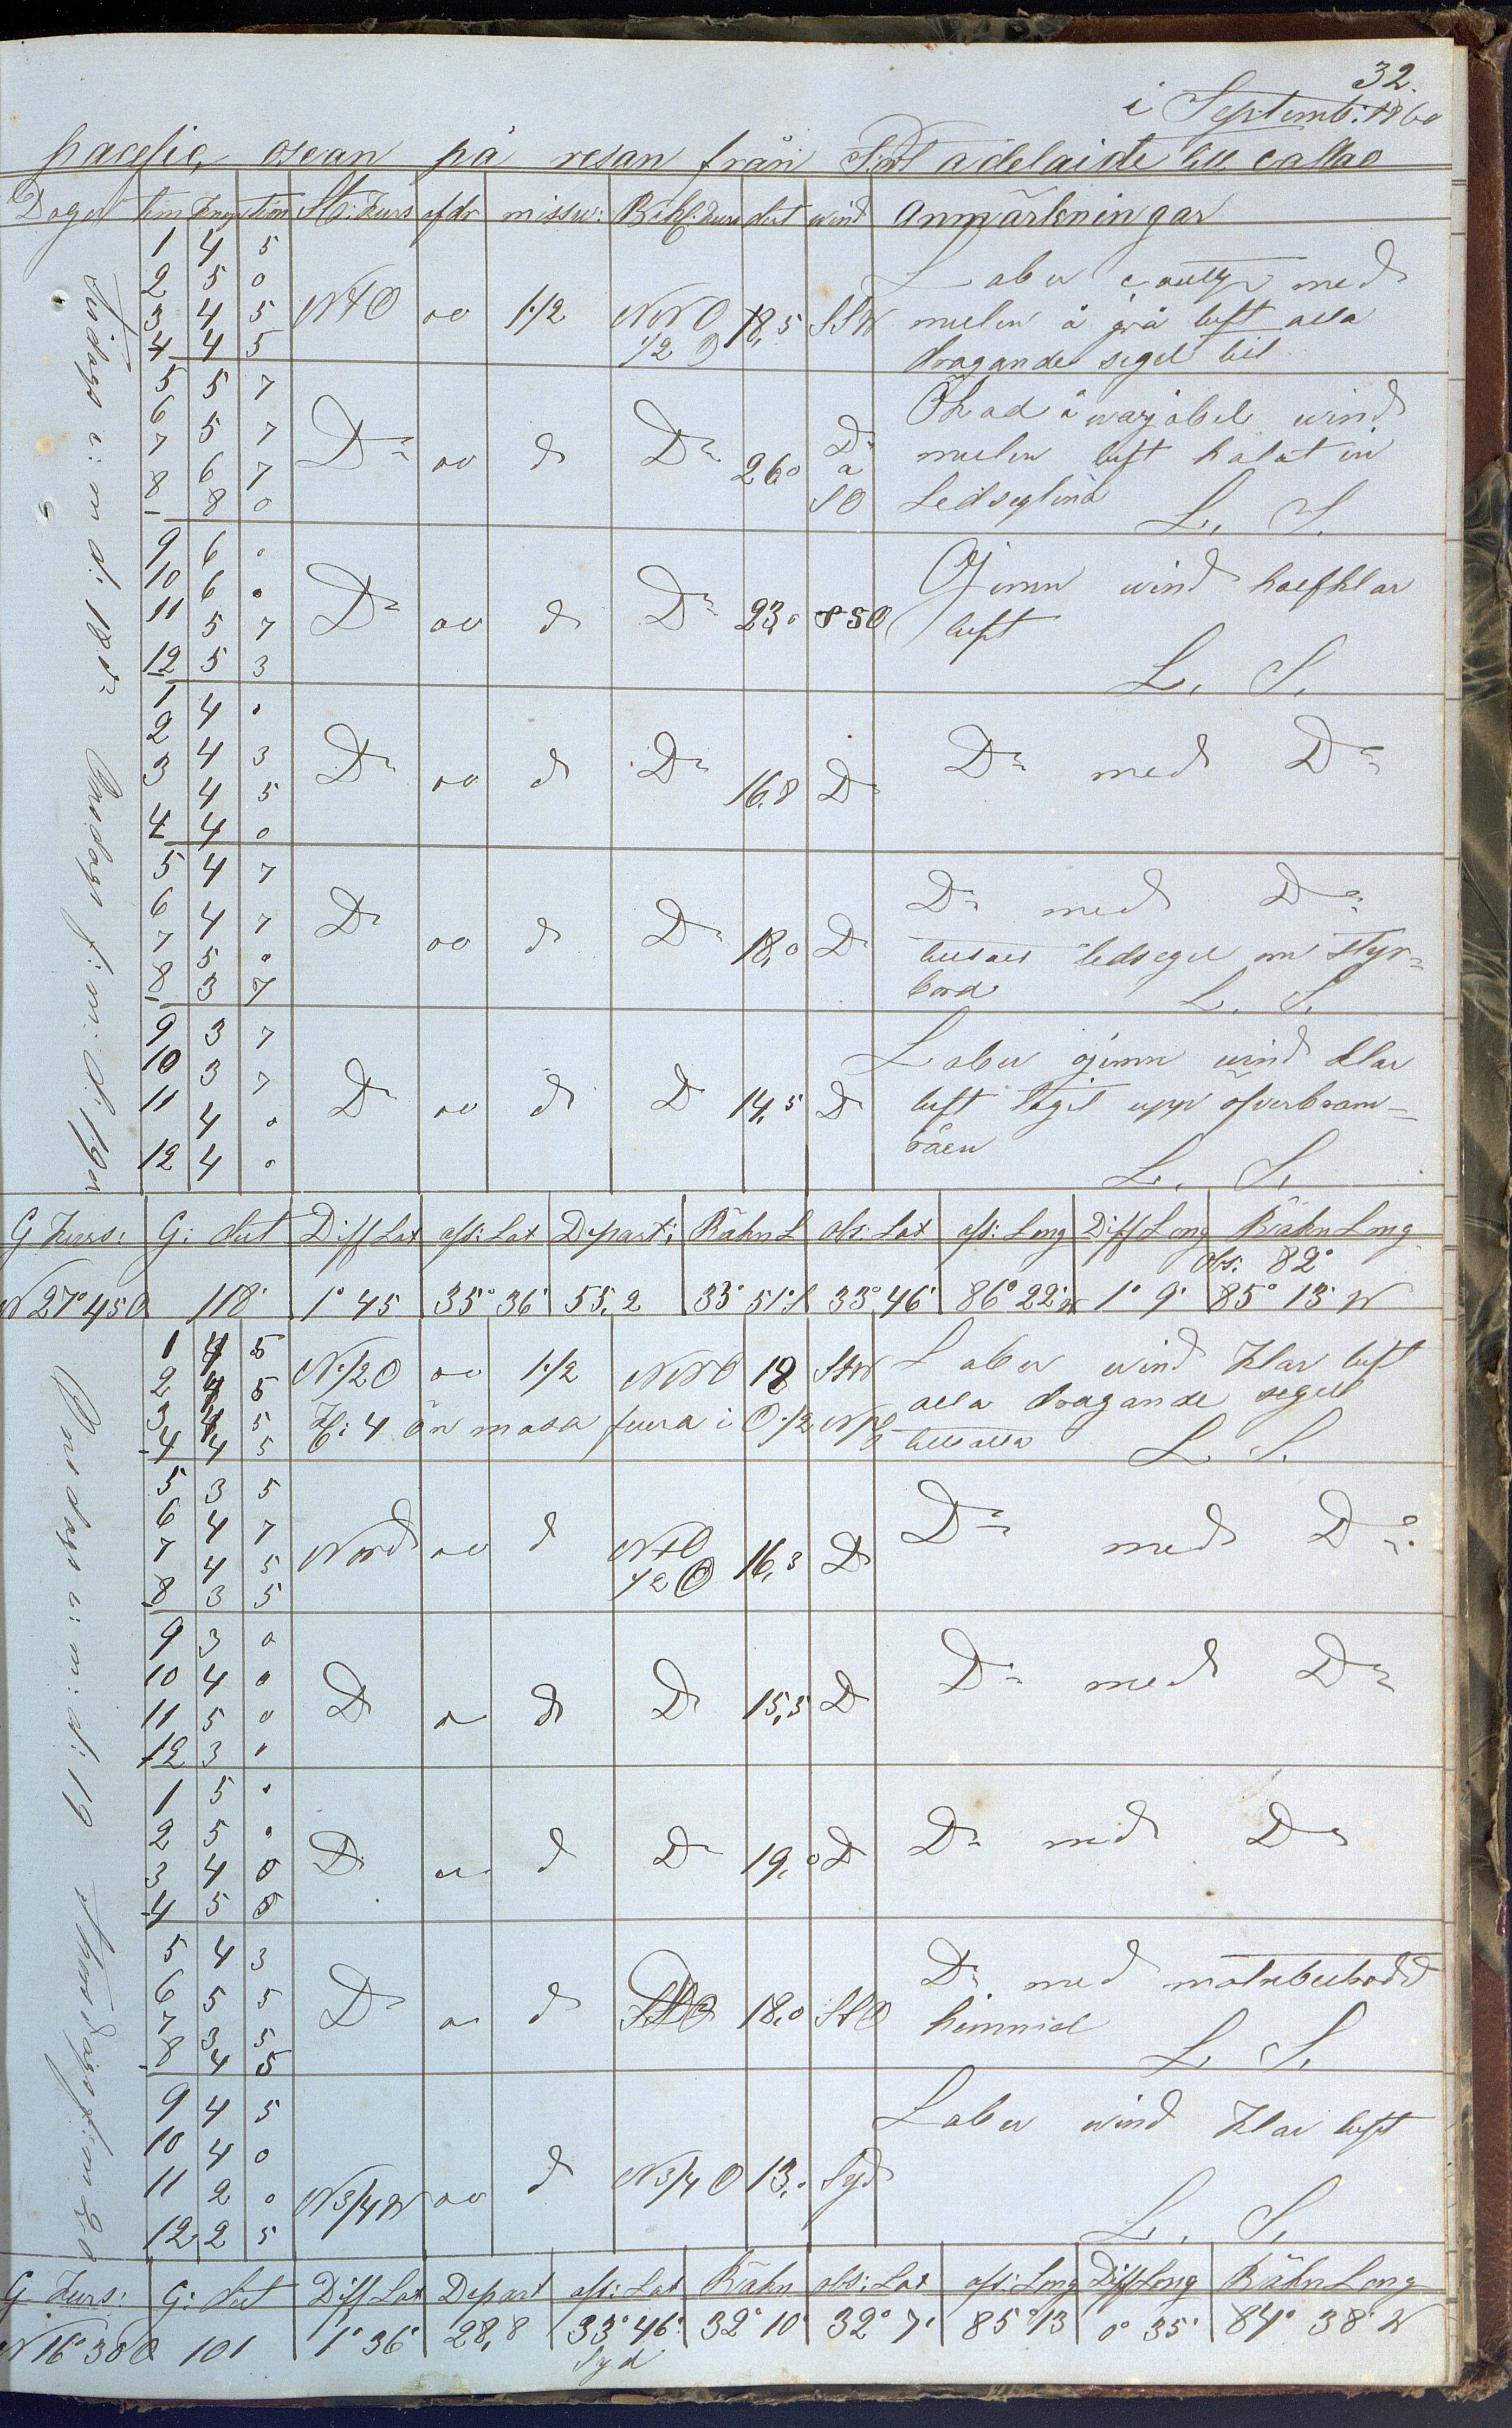 32.
i Septemb: 1860
pacefic, osean på resan från Port adelaide till callao
Doget tim Knop tim St: Kurs afdr missw: Behl. Kurs dist wind Anmärkningar
Tisdags e: m d: 18de
1 4 5
2 5 0
3 4 5
4 4 5
NtO oo 1.1/2 NNO 1/2 O 18,5 SSW
Laber med
mulen å grå luft alla
dragande segel till
5 5 7
6 5 7
7 6 7
8 8 0
Do oo d Do 26,0 Do a SO
Ökad å warjabel wind
mulen luft halat in
Ledseglina
L. S.
9 6 0
10 6 0
11 5 7
12 5 3
Do oo d Do 23,0 SSO
Ojemn wind halfklar
luft
L. S.
Onsdags f: m: d: 19n
1 4 0
2 4 3
3 4 5
4 4 0
Do oo d Do 16,8 Do
Do med Do
5 4 7
6 4 7
7 5 0
8 3 7
Do oo d Do 18,0 Do
Do med Do
ledsegel om styr=
bord
L. S.
9 3 7
10 3 7
11 4 0
12 4 0
Do oo d Do 14,5 Do
Laber ojemn wind klar
luft tagit upp öfverbram-
råen
L. S.
G Kurs: G: dist Diff Lat aff: Lat Depart: Räkn L obs: Lat aff: Long Diff Long Räkn Long
obs: 82°
N 27° 45 O 118' 1° 45 35° 36' 55,2 33° 51' S 33° 46' 86° 22' W 1° 9' 85° 13' W
Onsdags e: m: d: 19
1 4 5
2 4 5
3 4 5
4 4 5
N.1/2 O oo 1.1/2 NNO 18 SSW
Kl: 4 ön masa fuera i O.1/2 N
Laber wind Klar luft
alla dragande segel
tillsatta
L. S.
5 3 5
6 4 7
7 4 5
8 3 5
Nord oo d NtO 1/2 O 16,3 Do
Do med Do
9 3 0
10 4 0
11 5 0
12 3 0
Do oo do Do 15,5 Do
Do med Do
Thorsdags f: m 20
1 5 0
2 5 0
3 4 0
4 5 0
Do oo d Do 19,0 Do
Do med Do
5 4 3
6 5 5
7 3 5
8 4 5
Do oo d 18,0 StO
Do med molnbetäckt
himmel
L. S.
9 4 5
10 4 0
11 2 0
12 2 5
N 3/4 W oo d N 3/4 O 13,0 Syd
Laber wind Klar luft
L. S.
G Kurs: G: dist Diff Lat Depart aff: Lat Räkn obs: Lat aff: Long Diff Long Räkn Long
N 16° 30 O 101 1° 36' 28,8 33° 46' Syd 32° 10' 32° 7' 85° 13 0° 35' 84° 38' W